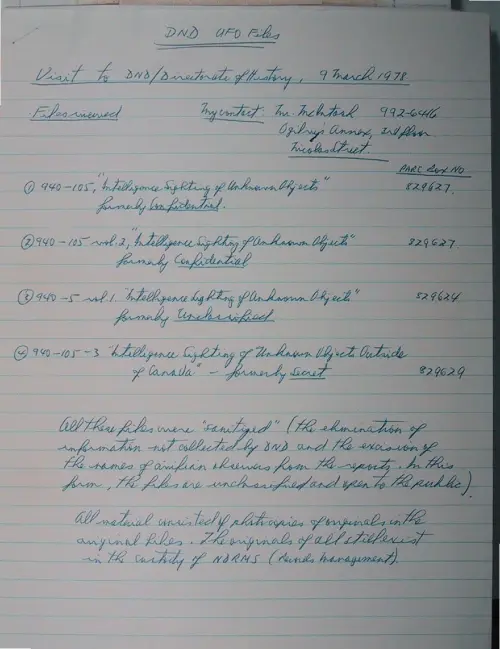 DND UFO Files
Visit to DND/Directorate of History, 9 March 1978
Files viewed My contact: Mr. McIntosh 992-6416
Ogilvy's Annex, 2nd floor
Nicolas Street.
PARC Box NO
① 940-105, "Intelligence Sighting of Unknown Objects" 829627.
formerly Confidential.
② 940-105 vol. 2, "Intelligence Sighting of Unknown Objects" 829627.
formerly Confidential
③ 940-5 vol 1. "Intelligence Sighting of Unknown Objects" 829624
formerly Unclassified
④ 940-105-3 "Intelligence Sighting of Unknown Objects Outside
of Canada" - formerly Secret 829629
All these files were "sanitized" (the elimination of
information not collected by DND and the excision of
the names of civilian observers from the reports. In this
form, the files are unclassified and open to the public).
All material consisted of photocopies of originals in the
original files. The originals of all still exist
in the custody of NDRMS (Records Management).